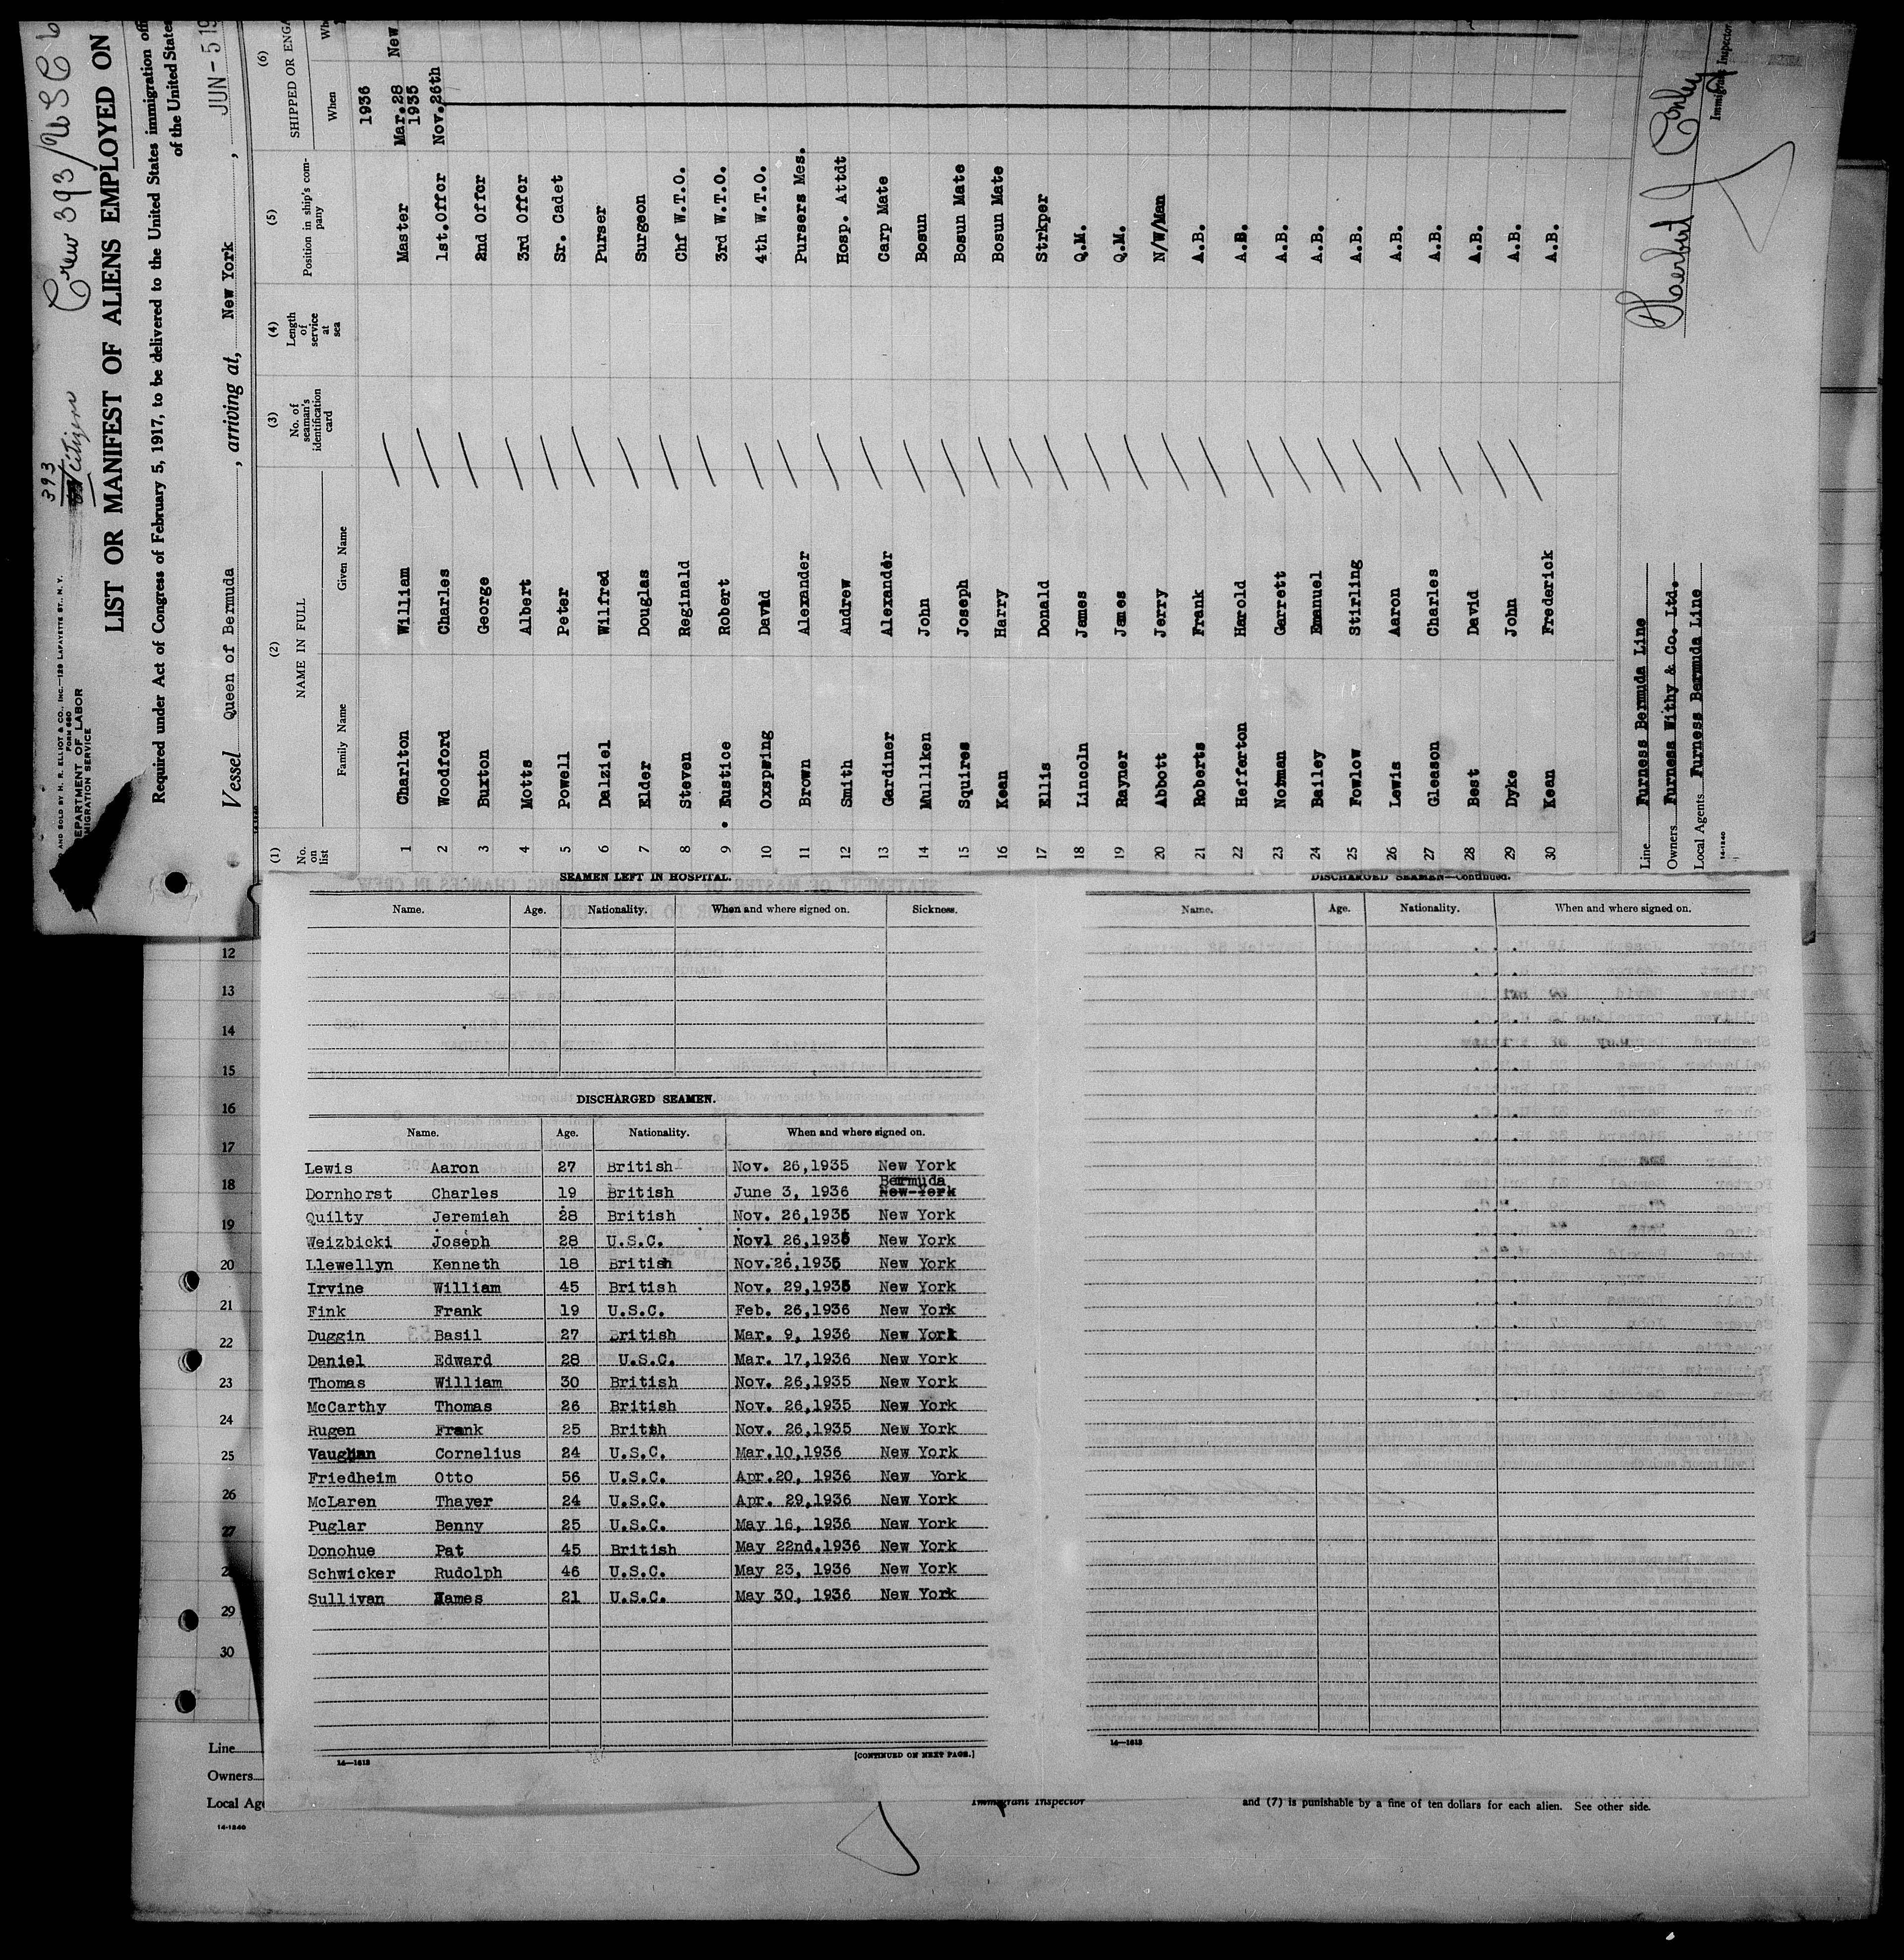 Crew 393/
393
Citizens
AND SOLD BY H. R. ELLIOT & CO., INC.—129 LAFAYETTE ST., N. Y.
FORM 680
DEPARTMENT OF LABOR
IMMIGRATION SERVICE
LIST OR MANIFEST OF ALIENS EMPLOYED ON
Required under Act of Congress of February 5, 1917, to be delivered to the United States immigration
of the United States
Vessel Queen of Bermuda , arriving at, New York , JUN - 5 19
(1) (2) (3) (4) (5) (6)
No. on list NAME IN FULL No. of seaman's identification card Length of service at sea Position in ship's company SHIPPED OR
Family Name Given Name When
1936
1 Charlton William Master Mar.28 New
1935
2 Woodford Charles 1st.Offcr Nov.26th
3 Buxton George 2nd Offcr
4 Motts Albert 3rd Offcr
5 Powell Peter Sr. Cadet
6 Dalziel Wilfred Purser
7 Elder Douglas Surgeon
8 Steven Reginald Chf W.T.O.
9 Eustice Robert 3rd W.T.O.
10 Oxspwing David 4th W.T.O.
11 Brown Alexander Pursers Mes.
12 Smith Andrew Hosp. Attdt
13 Gardiner Alexander Carp Mate
14 Mulliken John Bosun
15 Squires Joseph Bosun Mate
16 Kean Harry Bosun Mate
17 Ellis Donald Strkper
18 Lincoln James Q.M.
19 Rayner James Q.M.
20 Abbott Jerry N/W/Man
21 Roberts Frank A.B.
22 Hefferton Harold A.B.
23 Notman Garrett A.B.
24 Bailey Emanuel A.B.
25 Fowlow Stirling A.B.
26 Lewis Aaron A.B.
27 Gleason Charles A.B.
28 Best David A.B.
29 Dyke John A.B.
30 Kean Frederick A.B.
Line Furness Bermuda Line
Owners Furness Withy & Co. Ltd.
Local Agents Furness Bermuda Line
14-1240
Herbert J Conley
Immigrant Inspector
SEAMEN LEFT IN HOSPITAL.
Name. Age. Nationality. When and where signed on. Sickness.
DISCHARGED SEAMEN.
Name. Age. Nationality. When and where signed on.
Lewis Aaron 27 British Nov. 26,1935 New York
Bermuda
Dornhorst Charles 19 British June 3, 1936 New York
Quilty Jeremiah 28 British Nov. 26,1935 New York
Weizbicki Joseph 28 U.S.C. Novl 26,1935 New York
Llewellyn Kenneth 18 British Nov.26,1935 New York
Irvine William 45 British Nov. 29,1935 New York
Fink Frank 19 U.S.C. Feb. 26,1936 New York
Duggin Basil 27 British Mar. 9, 1936 New York
Daniel Edward 28 U.S.C. Mar. 17,1936 New York
Thomas William 30 British Nov. 26,1935 New York
McCarthy Thomas 26 British Nov. 26,1935 New York
Rugen Frank 25 British Nov. 26,1935 New York
Vaughan Cornelius 24 U.S.C. Mar.10,1936 New York
Friedheim Otto 56 U.S.C. Apr.20, 1936 New York
McLaren Thayer 24 U.S.C. Apr. 29,1936 New York
Puglar Benny 25 U.S.C. May 16, 1936 New York
Donohue Pat 45 British May 22nd.1936 New York
Schwicker Rudolph 46 U.S.C. May 23, 1936 New York
Sullivan James 21 U.S.C. May 30, 1936 New York
14—1613
[CONTINUED ON NEXT PAGE.]
DISCHARGED SEAMEN—Continued.
Name. Age. Nationality. When and where signed on.
14—1613
12
13
14
15
16
17
18
19
20
21
22
23
24
25
26
27
28
29
30
Line
Owners
Local Ag
14-1240
Immigrant Inspector
and (7) is punishable by a fine of ten dollars for each alien. See other side.